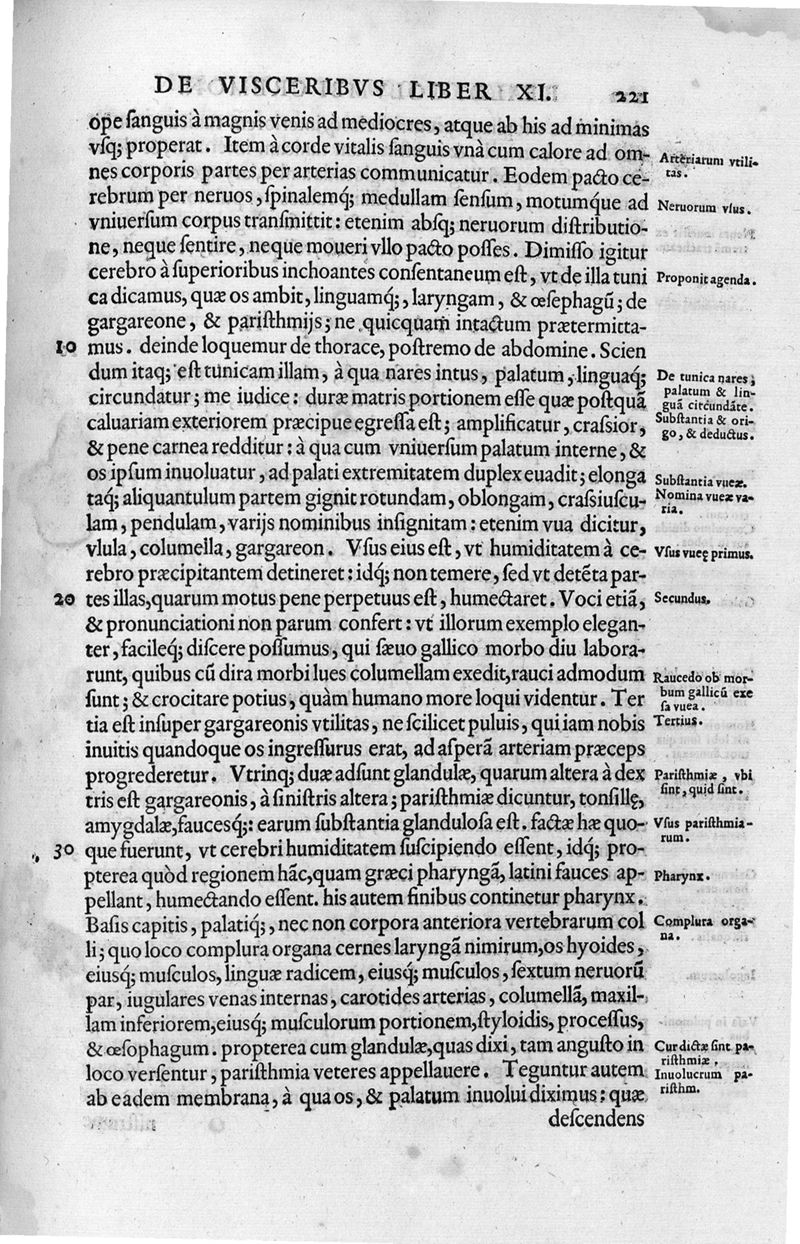 DE VISCERIBVS LIBER XI. 221
ope ſanguis à magnis venis ad mediocres, atque ab his ad minimas
vſq; properat. Item à corde vitalis ſanguis vnà cum calore ad om-
nes corporis partes per arterias communicatur. Eodem pacto ce-
rebrum per neruos, ſpinalemq́; medullam ſenſum, motumque ad
vniuerſum corpus tranſmittit: etenim abſq; neruorum diſtributio-
ne, neque ſentire, neque moueri vllo pacto poſſes. Dimiſſo igitur
cerebro à ſuperioribus inchoantes conſentaneum eſt, vt de illa tuni
ca dicamus, quæ os ambit, linguamq́;, laryngam, & œſephagū; de
gargareone, & pariſthmijs; ne quicquam intactum prætermitta-
10 mus. deinde loquemur de thorace, poſtremo de abdomine. Scien
dum itaq; eſt tunicam illam, à qua nares intus, palatum, linguaq́;
circundatur; me iudice: duræ matris portionem eſſe quæ poſtquā
caluariam exteriorem præcipue egreſſa eſt; amplificatur, craſsior,
& pene carnea redditur: à qua cum vniuerſum palatum interne, &
os ipſum inuoluatur, ad palati extremitatem duplex euadit; elonga
taq́; aliquantulum partem gignit rotundam, oblongam, craſsiuſcu-
lam, pendulam, varijs nominibus inſignitam: etenim vua dicitur,
vlula, columella, gargareon. Vſus eius eſt, vt humiditatem à ce-
rebro præcipitantem detineret: idq́; non temere, ſed vt detēta par-
20 tes illas, quarum motus pene perpetuus eſt, humectaret. Voci etiā,
& pronunciationi non parum confert: vt illorum exemplo elegan-
ter, facileq́; diſcere poſſumus, qui ſæuo gallico morbo diu labora-
runt, quibus cū dira morbi lues columellam exedit, rauci admodum
ſunt; & crocitare potius, quàm humano more loqui videntur. Ter
tia eſt inſuper gargareonis vtilitas, ne ſcilicet puluis, qui iam nobis
inuitis quandoque os ingreſſurus erat, ad aſperā arteriam præceps
progrederetur. Vtrinq; duæ adſunt glandulæ, quarum altera à dex
tris eſt gargareonis, à ſiniſtris altera; pariſthmiæ dicuntur, tonſillę,
amygdalæ, faucesq́;: earum ſubſtantia glanduloſa eſt. factæ hæ quo-
30 que fuerunt, vt cerebri humiditatem ſuſcipiendo eſſent, idq́; pro-
pterea quòd regionem hāc, quam græci pharyngā, latini fauces ap-
pellant, humectando eſſent. his autem finibus continetur pharynx.
Baſis capitis, palatiq́;, nec non corpora anteriora vertebrarum col
li; quo loco complura organa cernes laryngā nimirum, os hyoides,
eiusq́; muſculos, linguæ radicem, eiusq́; muſculos, ſextum neruorū
par, iugulares venas internas, carotides arterias, columellā, maxil-
lam inferiorem, eiusq́; muſculorum portionem, ſtyloidis, proceſſus,
& œſophagum. propterea cum glandulæ, quas dixi, tam anguſto in
loco verſentur, pariſthmia veteres appellauere. Teguntur autem
ab eadem membrana, à qua os, & palatum inuolui diximus: quæ
deſcendens
Arteriarum vtili-
tas.
Neruorum vſus.
Proponit agenda.
De tunica nares,
palatum & lin-
guā circundāte.
Subſtantia & ori-
go, & deductus.
Subſtantia vueæ.
Nomina vueæ va-
ria.
Vſus vueę primus.
Secundus.
Raucedo ob mor-
bum gallicū exe
ſa vuea.
Tertius.
Pariſthmiæ, vbi
ſint, quid ſint.
Vſus pariſthmia-
rum.
Pharynx.
Complura orga-
na.
Cur dictæ ſint pa-
riſthmiæ.
Inuolucrum pa-
riſthm.